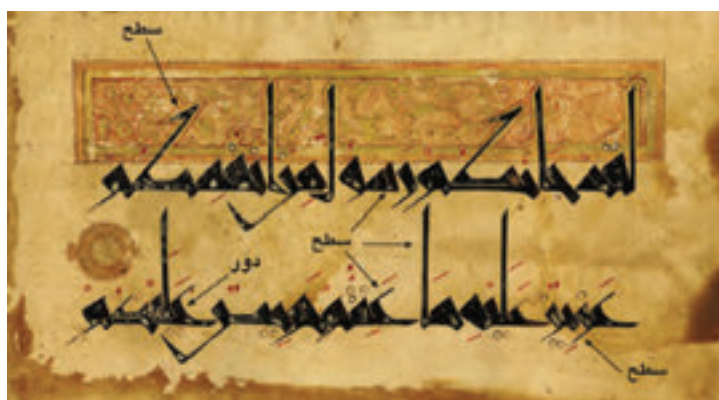 سطح
لقد جاءكم رسول من أنفسكم
سطح
دور
عزيز عليه ما عنتم حريص عليكم
سطح